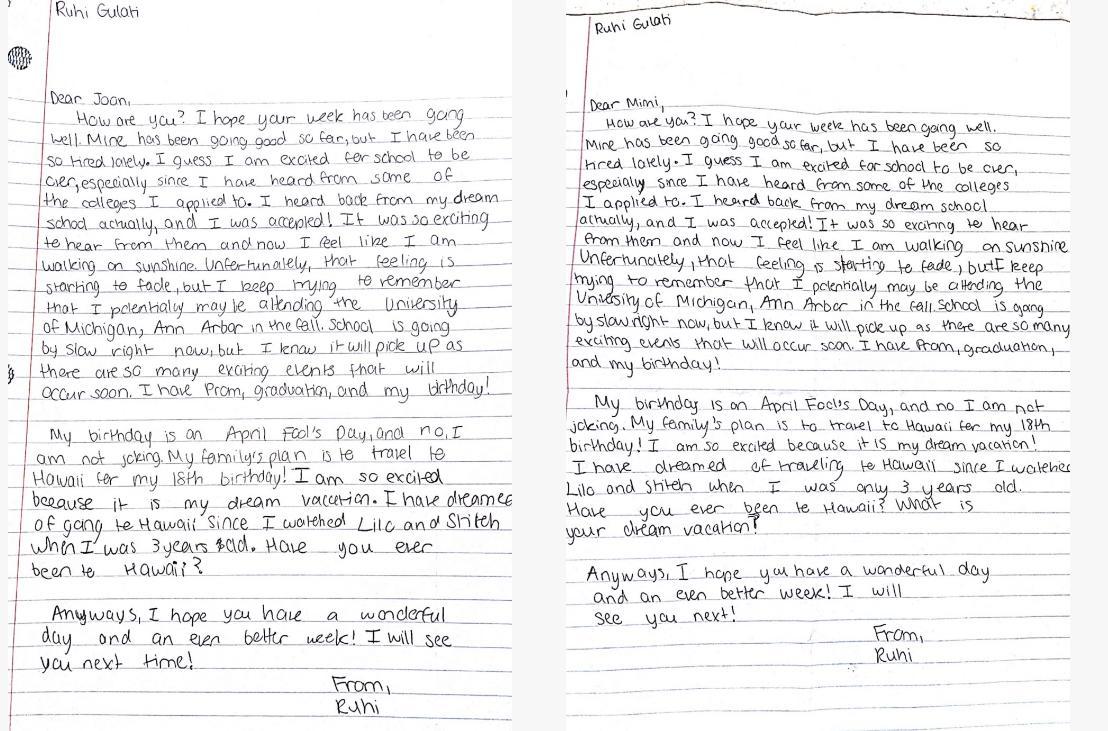 Ruhi Gulati
Dear Joan,
How are you? I hope your week has been going
well. Mine has been going good so far, but I have been
so tired lately. I guess I am excited for school to be
over, especially since I have heard from some of
the colleges I applied to. I heard back from my dream
school actually, and I was accepted! It was so exciting
to hear from them and now I feel like I am
walking on sunshine. Unfortunately, that feeling is
starting to fade, but I keep trying to remember
that I potentially may be attending the University
of Michigan, Ann Arbor in the fall. School is going
by slow right now, but I know it will pick up as
there are so many exciting events that will
occur soon. I have Prom, graduation, and my birthday!
My birthday is on April Fool's Day, and no, I
am not joking. My family's plan is to travel to
Hawaii for my 18th birthday! I am so excited
because it is my dream vacation. I have dreamed
of going to Hawaii since I watched Lilo and Stitch
when I was 3 years old. Have you ever
been to Hawaii?
Anyways, I hope you have a wonderful
day and an even better week! I will see
you next time!
From,
Ruhi
Ruhi Gulati
Dear Mimi,
How are you? I hope your week has been going well.
Mine has been going good so far, but I have been so
tired lately. I guess I am excited for school to be over,
especially since I have heard from some of the colleges
I applied to. I heard back from my dream school
actually, and I was accepted! It was so exciting to hear
from them and now I feel like I am walking on sunshine
Unfortunately, that feeling is starting to fade, but I keep
trying to remember that I potentially may be attending the
University of Michigan, Ann Arbor in the fall. School is going
by slow right now, but I know it will pick up as there are so many
exciting events that will occur soon. I have Prom, graduation,
and my birthday!
My birthday is on April Fool's Day, and no I am not
joking. My family's plan is to travel to Hawaii for my 18th
birthday! I am so excited because it is my dream vacation!
I have dreamed of traveling to Hawaii since I watched
Lilo and Stitch when I was only 3 years old.
Have you ever been to Hawaii? What is
your dream vacation?
Anyways, I hope you have a wonderful day
and an even better week! I will
see you next!
From,
Ruhi